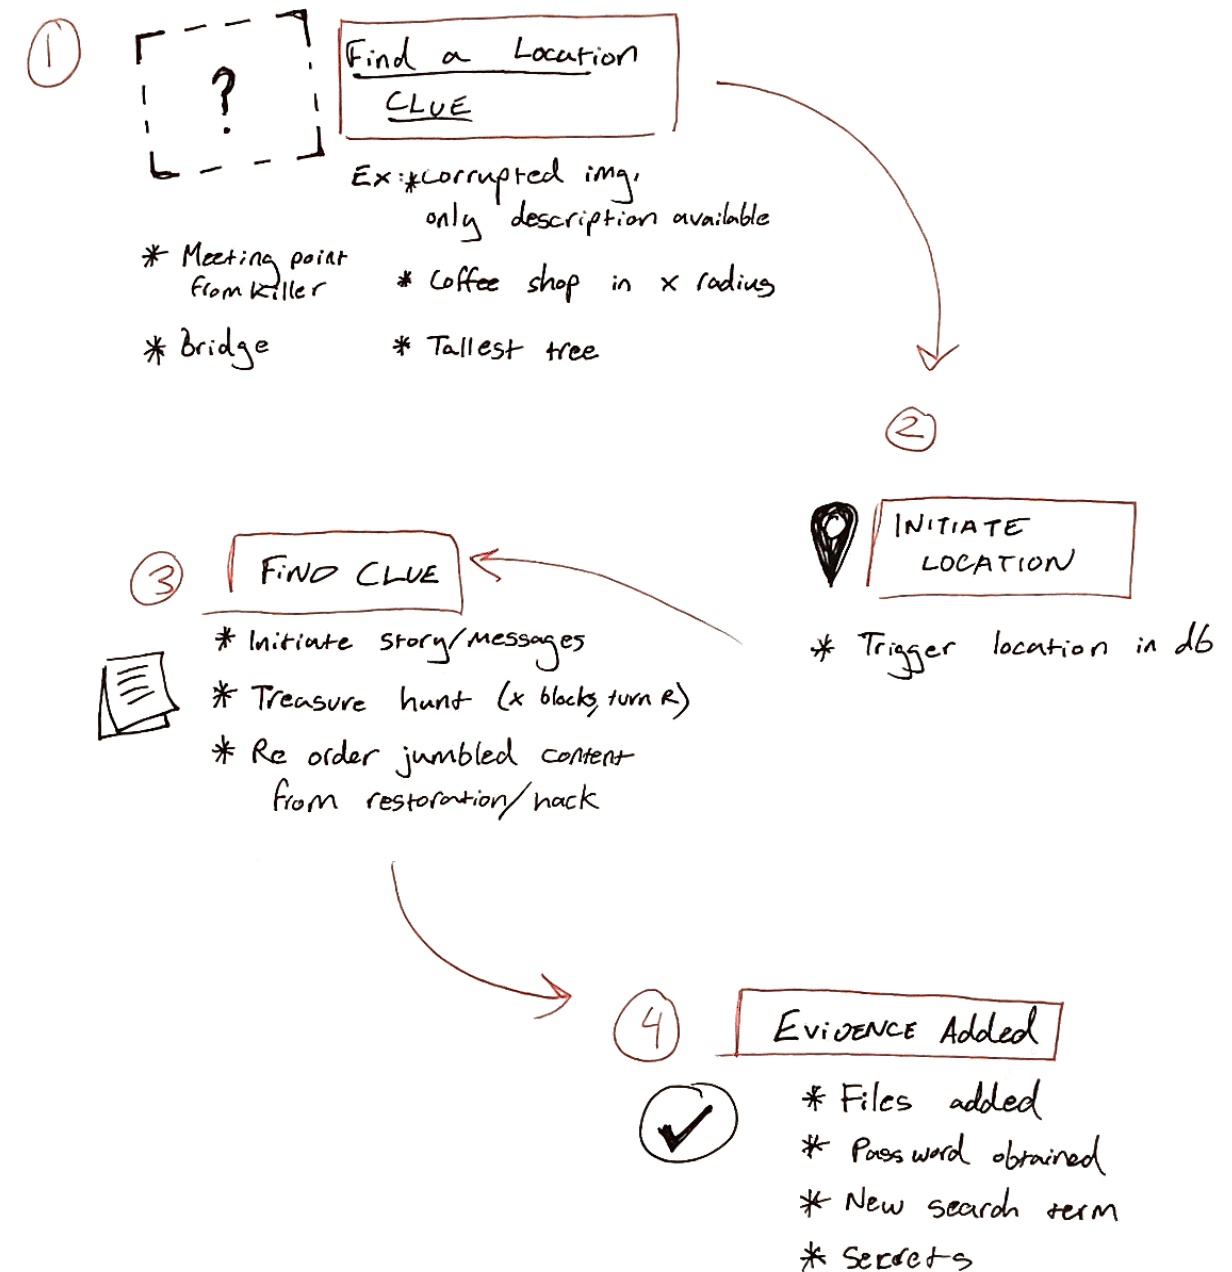 1
?
Find a Location
CLUE
Ex: * corrupted img,
only description available
* Meeting point
from killer
* Coffee shop in x radius
* Bridge
* Tallest tree
2
INITIATE
LOCATION
* Trigger location in db
3
FIND CLUE
* Initiate story/messages
* Treasure hunt (x blocks, turn R)
* Re order jumbled content
from restoration/hack
4
EVIDENCE Added
* Files added
* Password obtained
* New search term
* Secrets